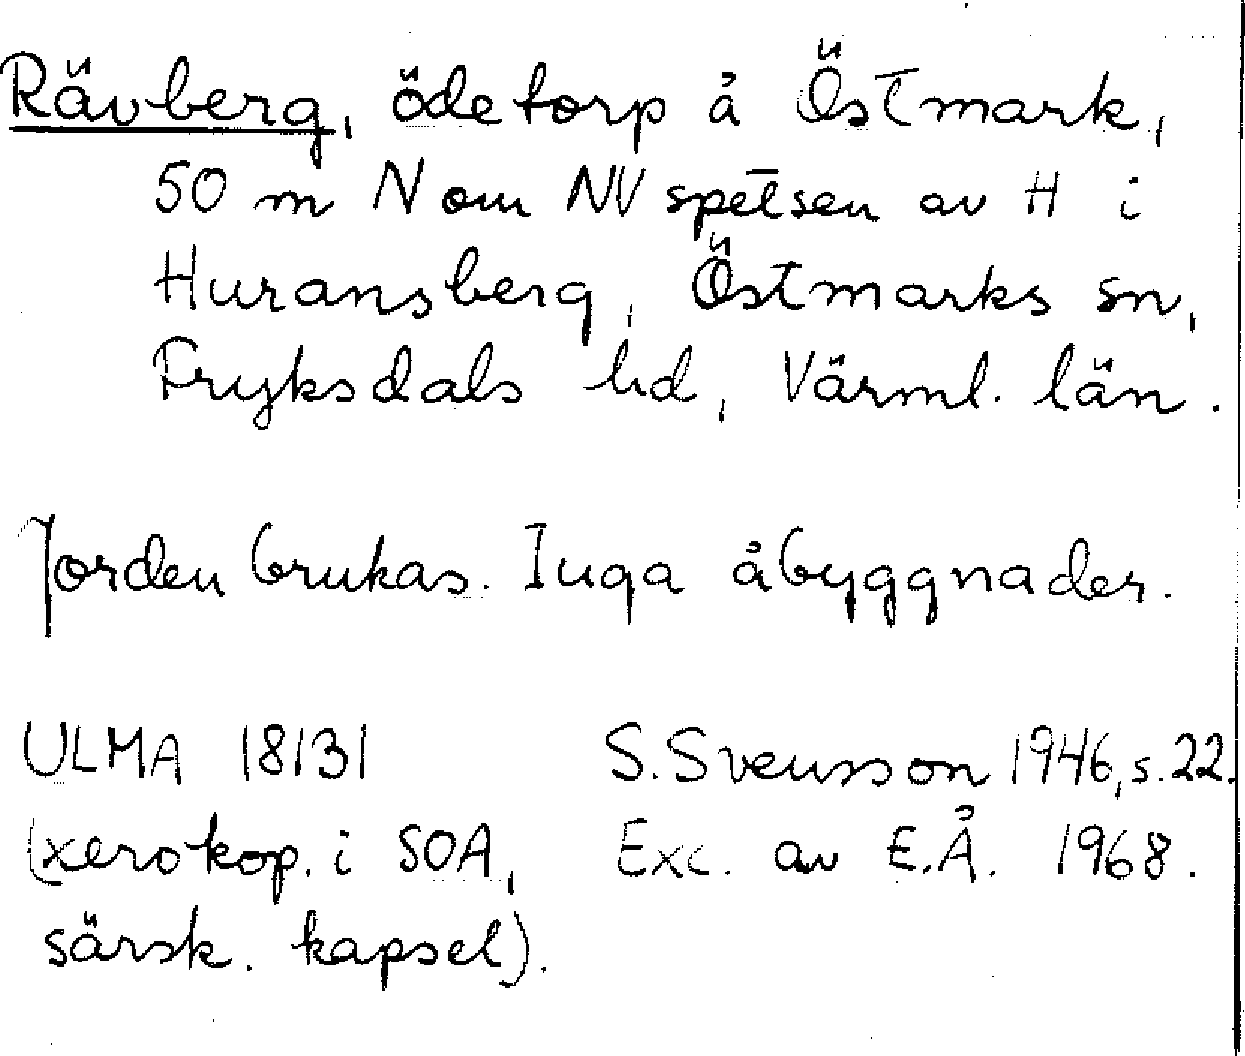 Rävberg, ödetorp å Östmark,
50 m N om NV spetsen av H i
Huransberg, Östmarks sn,
Fryksdals hd, Värml. län.
Jorden brukas. Inga åbyggnader.
ULMA 18131 S. Svensson 1946, s. 22.
(xerokop. i SOA, Exc. av E.Å. 1968.
särsk. kapsel).